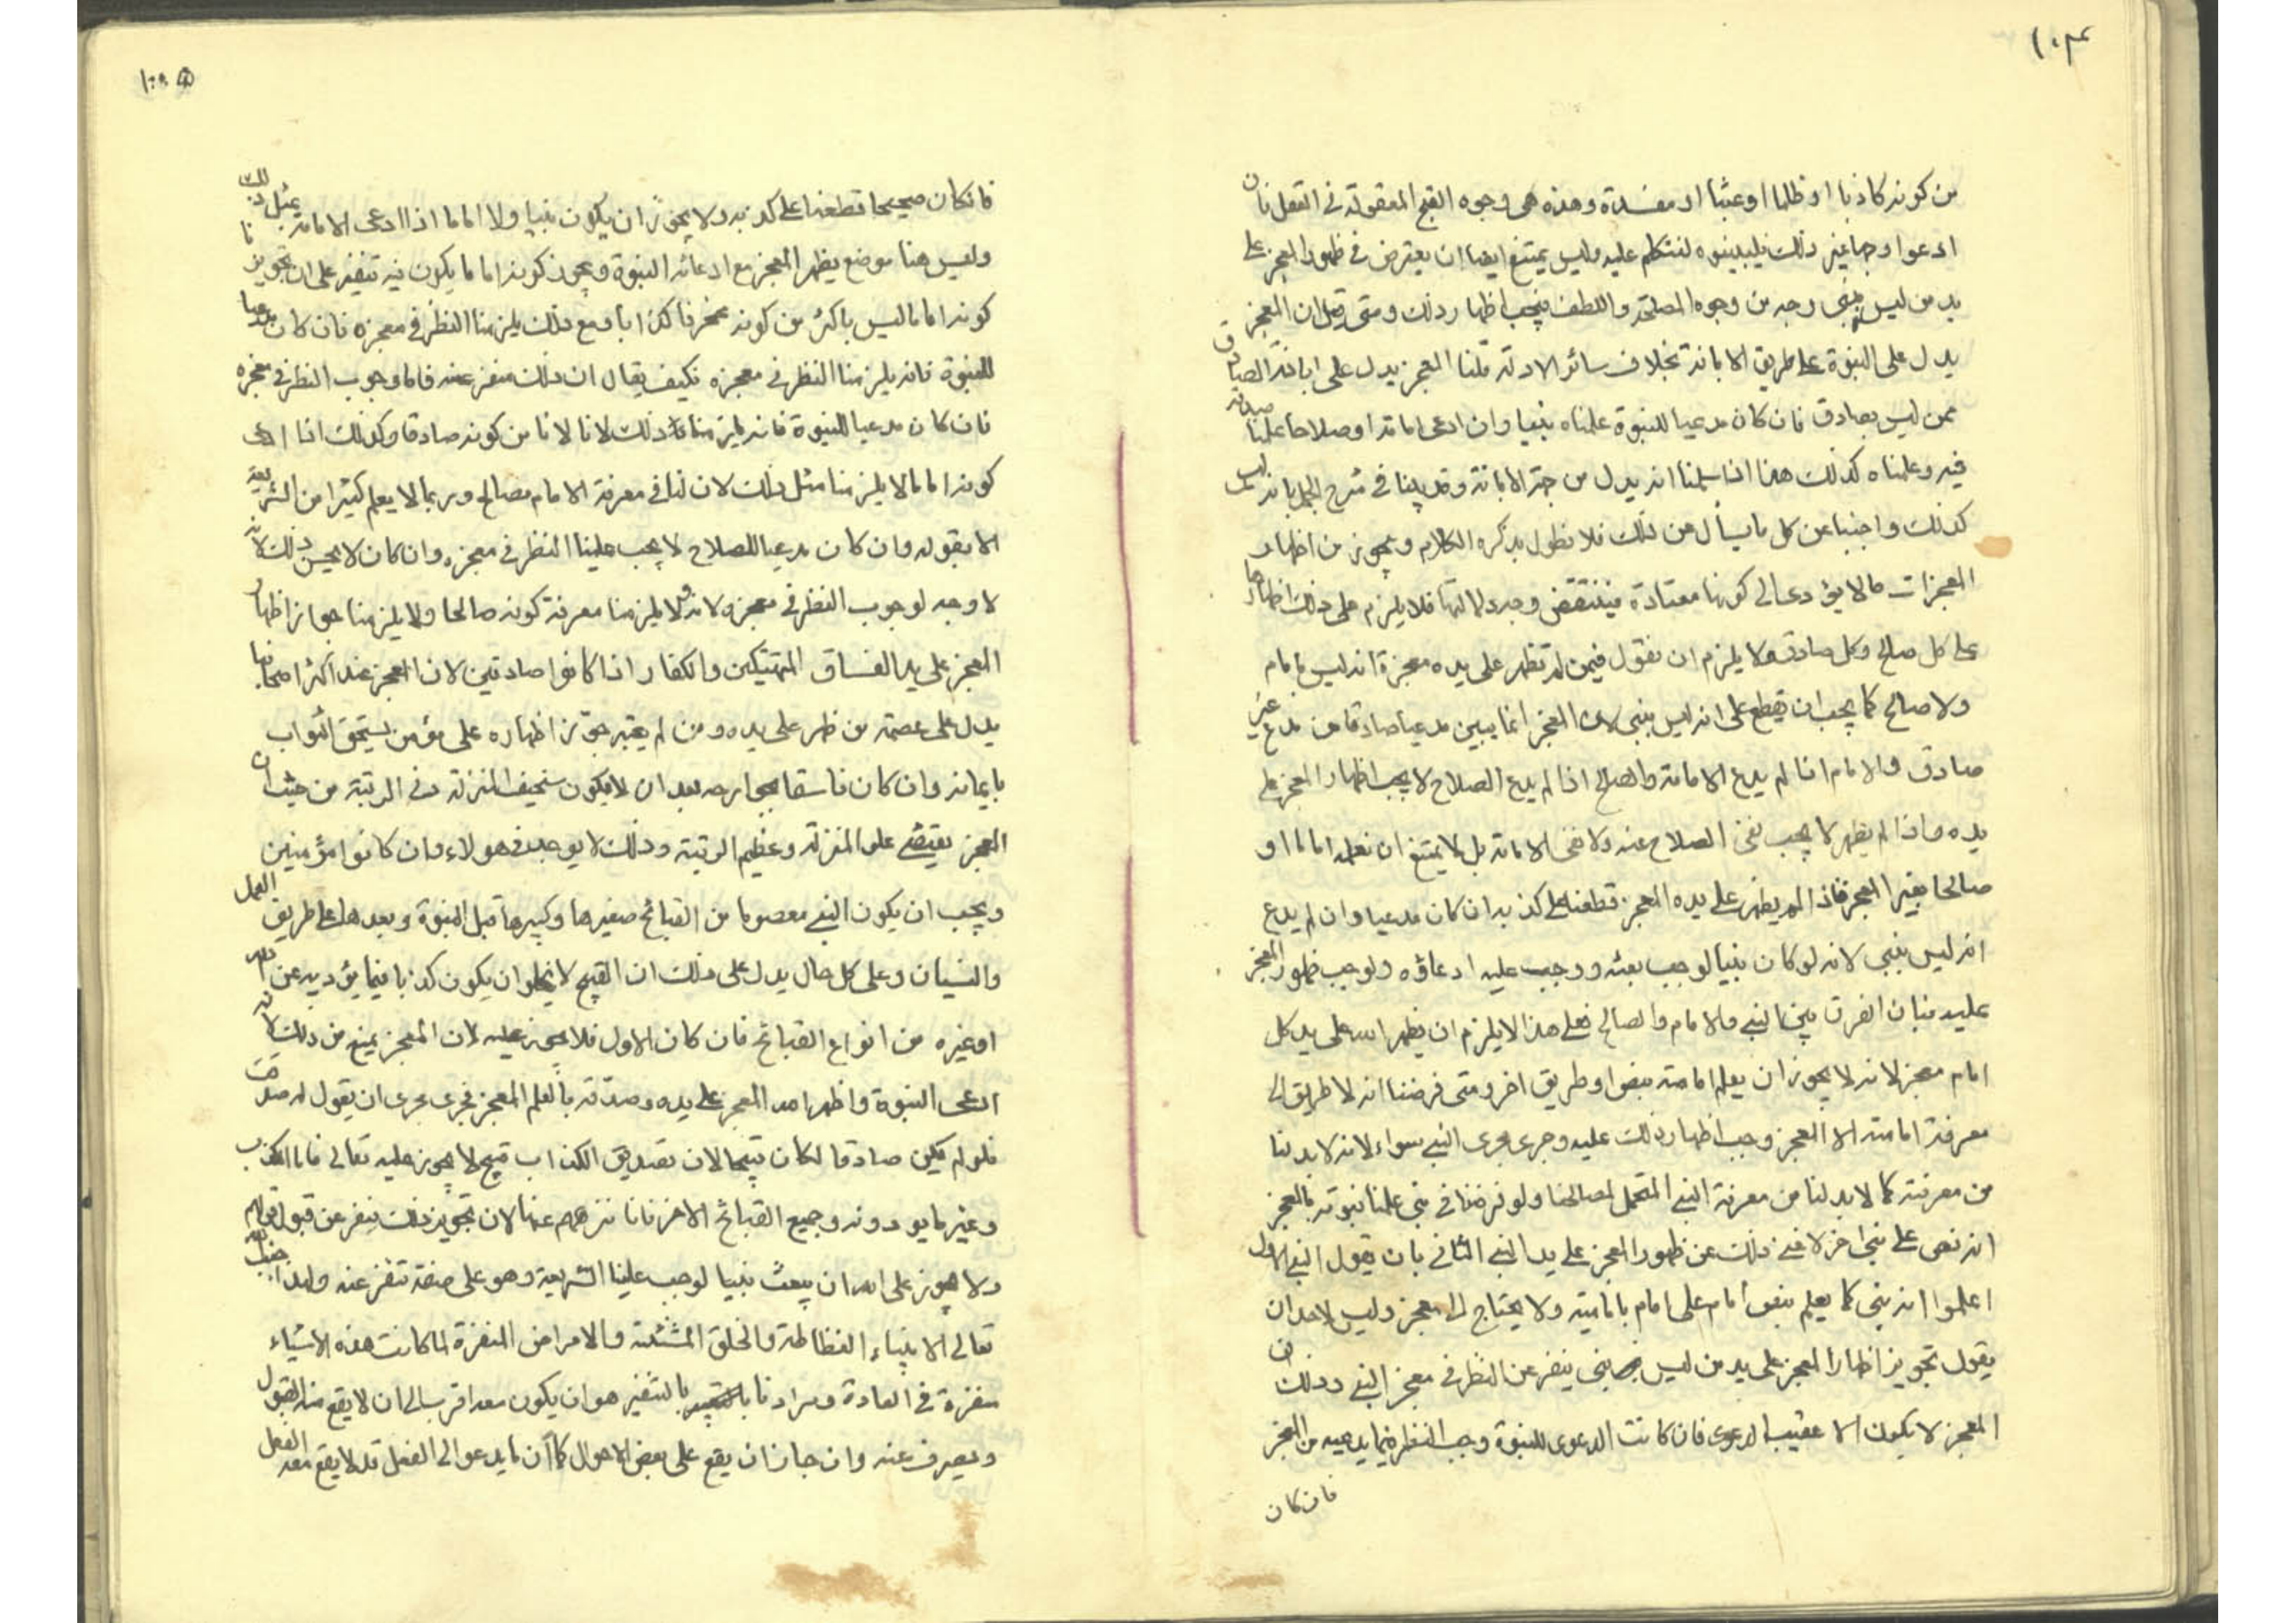 ١٠٤
من كونه كاذبا او ظلما او عبثا او مفسدة وهذه هى وجوه القبح المعقولة فى الفعل فان
ادعوا وجها غير ذلك فليبينوه لنتكلم عليه وليس يمتنع ايضا ان يعترض فى ظهور المعجز على
يد من ليس بنبى وجه من وجوه المصلحة واللطف فيجب اظهار ذلك ومتى قيل ان المعجز
يدل على النبوة على طريق الابانة بخلاف سائر الادلة قلنا المعجز يدل على ابانة الصادق
ممن ليس بصادق فان كان مدعيا للنبوة علمناه نبيا وان ادعى امامة او صلاحا علمنا صدقه
فيه وعلمناه كذلك هذا اذا سلمنا انه يدل من جهة الابانة وقد بينا فى شرح الجمل بانه ليس
كذلك واجبنا عن كل ما يسأل من ذلك فلا نطول بذكره الكلام ويجوز من اظهار
المعجزات ما لا يؤدى الى كونها معتادة فينتقض وجه دلالتها فلا يلزم على ذلك اظهارها
على كل صالح وكل صادق ولا يلزم ان نقول فيمن لم تظهر على يده معجزة انه ليس بامام
ولا صالح كما يجب ان يقطع على انه ليس بنبى لان المعجز انما يبين مدعيا صادقا من مدع غير
صادق والامام اذا لم يدع الامامة والصالح اذا لم يدع الصلاح لا يجب اظهار المعجز على
يده واذا لم يظهر لا يجب نفى الصلاح عنه ولا نفى الامامة بل لا يمتنع ان نعلمه اماما او
صالحا بغير المعجز فاذا لم يظهر على يده المعجز قطعنا على كذبه ان كان مدعيا وان لم يدع
انه ليس بنبى لانه لو كان نبيا لوجب بعثه ووجب عليه ادعاؤه ولوجب ظهور المعجز
عليه فبان الفرق بين النبى والامام والصالح فعلى هذا لا يلزم ان يظهر الله على يد كل
امام معجز لانه لا يجوز ان يعلم امامته بنص او طريق اخر ومتى فرضنا انه لا طريق الى
معرفة امامته الا المعجز وجب اظهار ذلك عليه وجرى مجرى النبى سواء لانه لا بد لنا
من معرفته كما لا بد لنا من معرفة النبى المتحمل لمصالحنا ولو فرضنا فى نبى علمنا نبوته بالمعجز
انه نص على نبى اخر لاغنى ذلك عن ظهور المعجز على يد النبى الثانى بان يقول النبى الاول
اعلموا انه نبى كما يعلم بنص امام على امام بامامته ولا يحتاج الى معجز وليس لاحد ان
يقول تجويز اظهار المعجز على يد من ليس بنبى ينفر عن النظر فى معجز النبى وذلك ان
المعجز لا يكون الا عقيب الدعوى فان كانت الدعوى للنبوة وجب النظر فيما يدعيه من المعجز
فان كان
١٠٥
فان كان صحيحا قطعنا على كذبه ولا يجوز ان يكون نبيا ولا اماما اذا ادعى الامامة بمثل ذلك
وليس هنا موضع يظهر المعجز مع ادعائه النبوة ويجوز كونه اماما يكون فيه تنفير على ان تجويزنا
كونه اماما ليس باكثر من كونه مخرفا كذابا ومع ذلك يلزمنا النظر فى معجزه فان كان مدعيا
للنبوة فانه يلزمنا النظر فى معجزه فكيف يقال ان ذلك منفر عنه فاما وجوب النظر فى معجزه
فان كان مدعيا للنبوة فانه يلزمنا ذلك لانا لا من كونه صادقا وكذلك اذا ادعى
كونه اماما لا يلزمنا مثل ذلك لان لنا فى معرفة الامام مصالح وربما لا يعلم كثيرا من الشريعة
الا بقوله وان كان مدعيا للصلاح لا يجب علينا النظر فى معجزه وان كان لا يحسن ذلك لانه
لا وجه لوجوب النظر فى معجزه لانه لا يلزمنا معرفة كونه صالحا ولا يلزمنا جواز اظهار
المعجز على يد الفساق المتهتكين والكفار اذا كانوا صادقين لان المعجز عند اكثر اصحابنا
يدل على عصمة من ظهر على يده ومن لم يعتبر جوز اظهاره على مؤمن يستحق الثواب
بايمانه وان كان فاسقا بجوارحه بعد ان لا يكون سخيف المنزلة دنى الرتبة من حيث ان
المعجز يقتضى علو المنزلة وعظيم الرتبة وذلك لا يوجد فى هولاء وان كانوا مؤمنين
ويجب ان يكون النبى معصوما من القبائح صغيرها وكبيرها قبل النبوة وبعدها على طريق العمل
والنسيان وعلى كل حال يدل على ذلك ان القبيح لا يخلو ان يكون كذبا فيما يؤديه عن الله
او غيره من انواع القبائح فان كان الاول فلا يجوز عليه لان المعجز يمنع من ذلك لانه
ادعى النبوة واظهر الله المعجز على يده وصدقه بالعلم المعجز فجرى مجرى ان يقول له صدقت
فلو لم يكن صادقا لكان قبيحا لان تصديق الكذاب قبيح لا يجوز عليه تعالى فاما الكذب
وغير ما يودونه وجميع القبائح الاخر فانا ننزههم عنها لان تجويز ذلك ينفر عن قبول قولهم
ولا يجوز على الله ان يبعث نبيا لوجب علينا الشريعة وهو على صفة تنفر عنه ولهذا جنب الله
تعالى الانبياء الفظاظة والخلق المشنئة والامراض المنفرة لما كانت هذه الاشياء
منفرة فى العادة ومرادنا بالتنفير هو ان يكون معه اقرب الى ان لا يقع منه القبول
ويصرف عنه وان جاز ان يقع على بعض الاحوال كما ان ما يدعو الى الفعل قد لا يقع معه الفعل